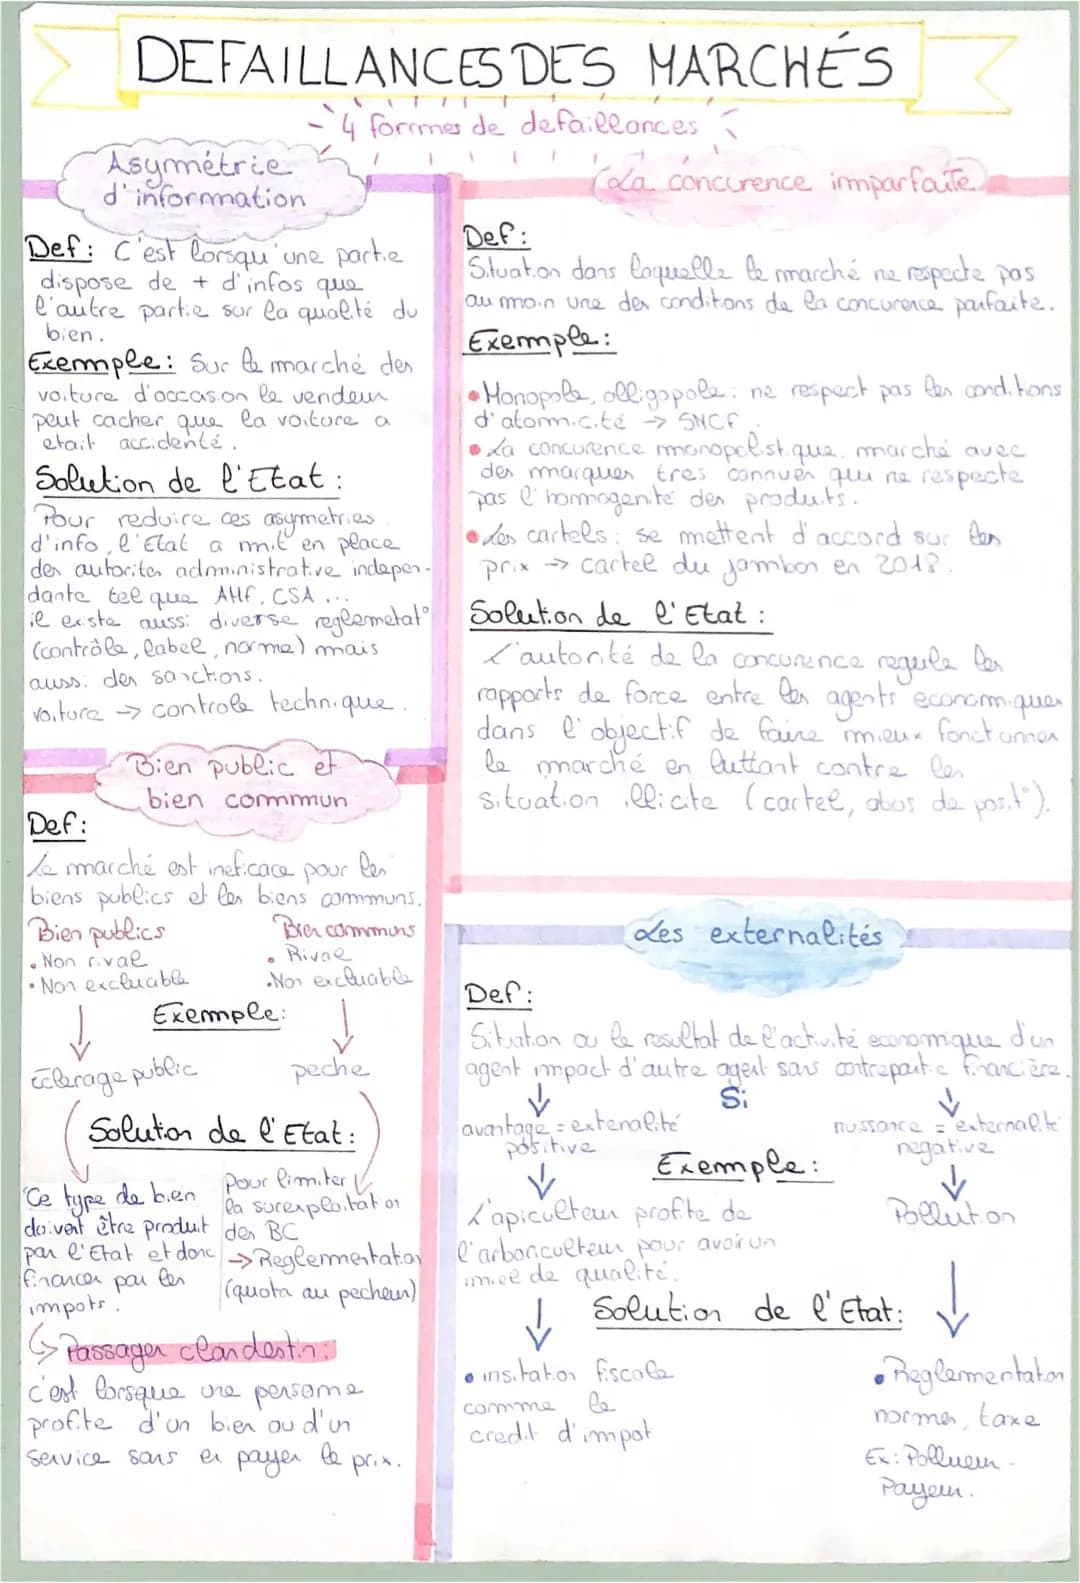 DEFAILLANCES DES MARCHÉS
4 formes de defaillances
Asymétrie
d'information
Def: C'est lorsqu'une partie
dispose de + d'infos que
l'autre partie sur la qualité du
bien.
Exemple: Sur le marché des
voiture d'occason le vendeur
peut cacher que la voiture a
etait accidenté.
Solution de l'Etat:
Pour reduire ces asymetries
d'info, l'Etat a mit en place
des autorites administrative indepen-
dante tel que AMF, CSA...
il existe aussi diverse reglemetat°
(contrôle, label, norme) mais
aussi des sanctions.
voiture → controle technique.
Bien public et
bien commun
Def:
Le marché est ineficace pour les
biens publics et les biens communs.
Bien publics
• Non rival
• Non excluable
Bien communs
• Rival
• Non excluable
Exemple:
Eclerage public
peche
Solution de l'Etat:
Ce type de bien
doivent être produit
par l'Etat et donc
financer par les
impots.
Pour limiter
la surexploitation
des BC
→ Reglementation
(quota au pecheur)
Passager clandestin:
c'est lorsque une personne
profite d'un bien ou d'un
service sans en payer le prix.
La concurence imparfaite
Def:
Situation dans laquelle le marché ne respecte pas
au moin une des conditions de la concurence parfaite.
Exemple:
• Monopole, olligopole: ne respect pas les conditions
d'atomicité → SNCF.
• La concurence monopolistique. marché avec
des marques tres connues qui ne respecte
pas l'homogenité des produits.
• Les cartels: se mettent d'accord sur les
prix → cartel du jambon en
Solution de l'Etat:
L'autorité de la concurence regule les
rapports de force entre les agents economiques
dans l'objectif de faire mieux fonctionner
le marché en luttant contre les
situation illicite (cartel, abus de posit°).
Les externalités
Def:
Situation ou le resultat de l'activité economique d'un
agent impact d'autre agent sans contrepartie financière.
Si
avantage = extenalité
positive
nussance = externalité
negative
Exemple:
L'apiculteur profite de
l'arboriculteur pour avoir un
miel de qualité.
Pollution
Solution de l'Etat:
• insitation fiscale
comme le
credit d'impot
• Reglementation
normes, taxe
Ex: Pollueur -
Payeur.